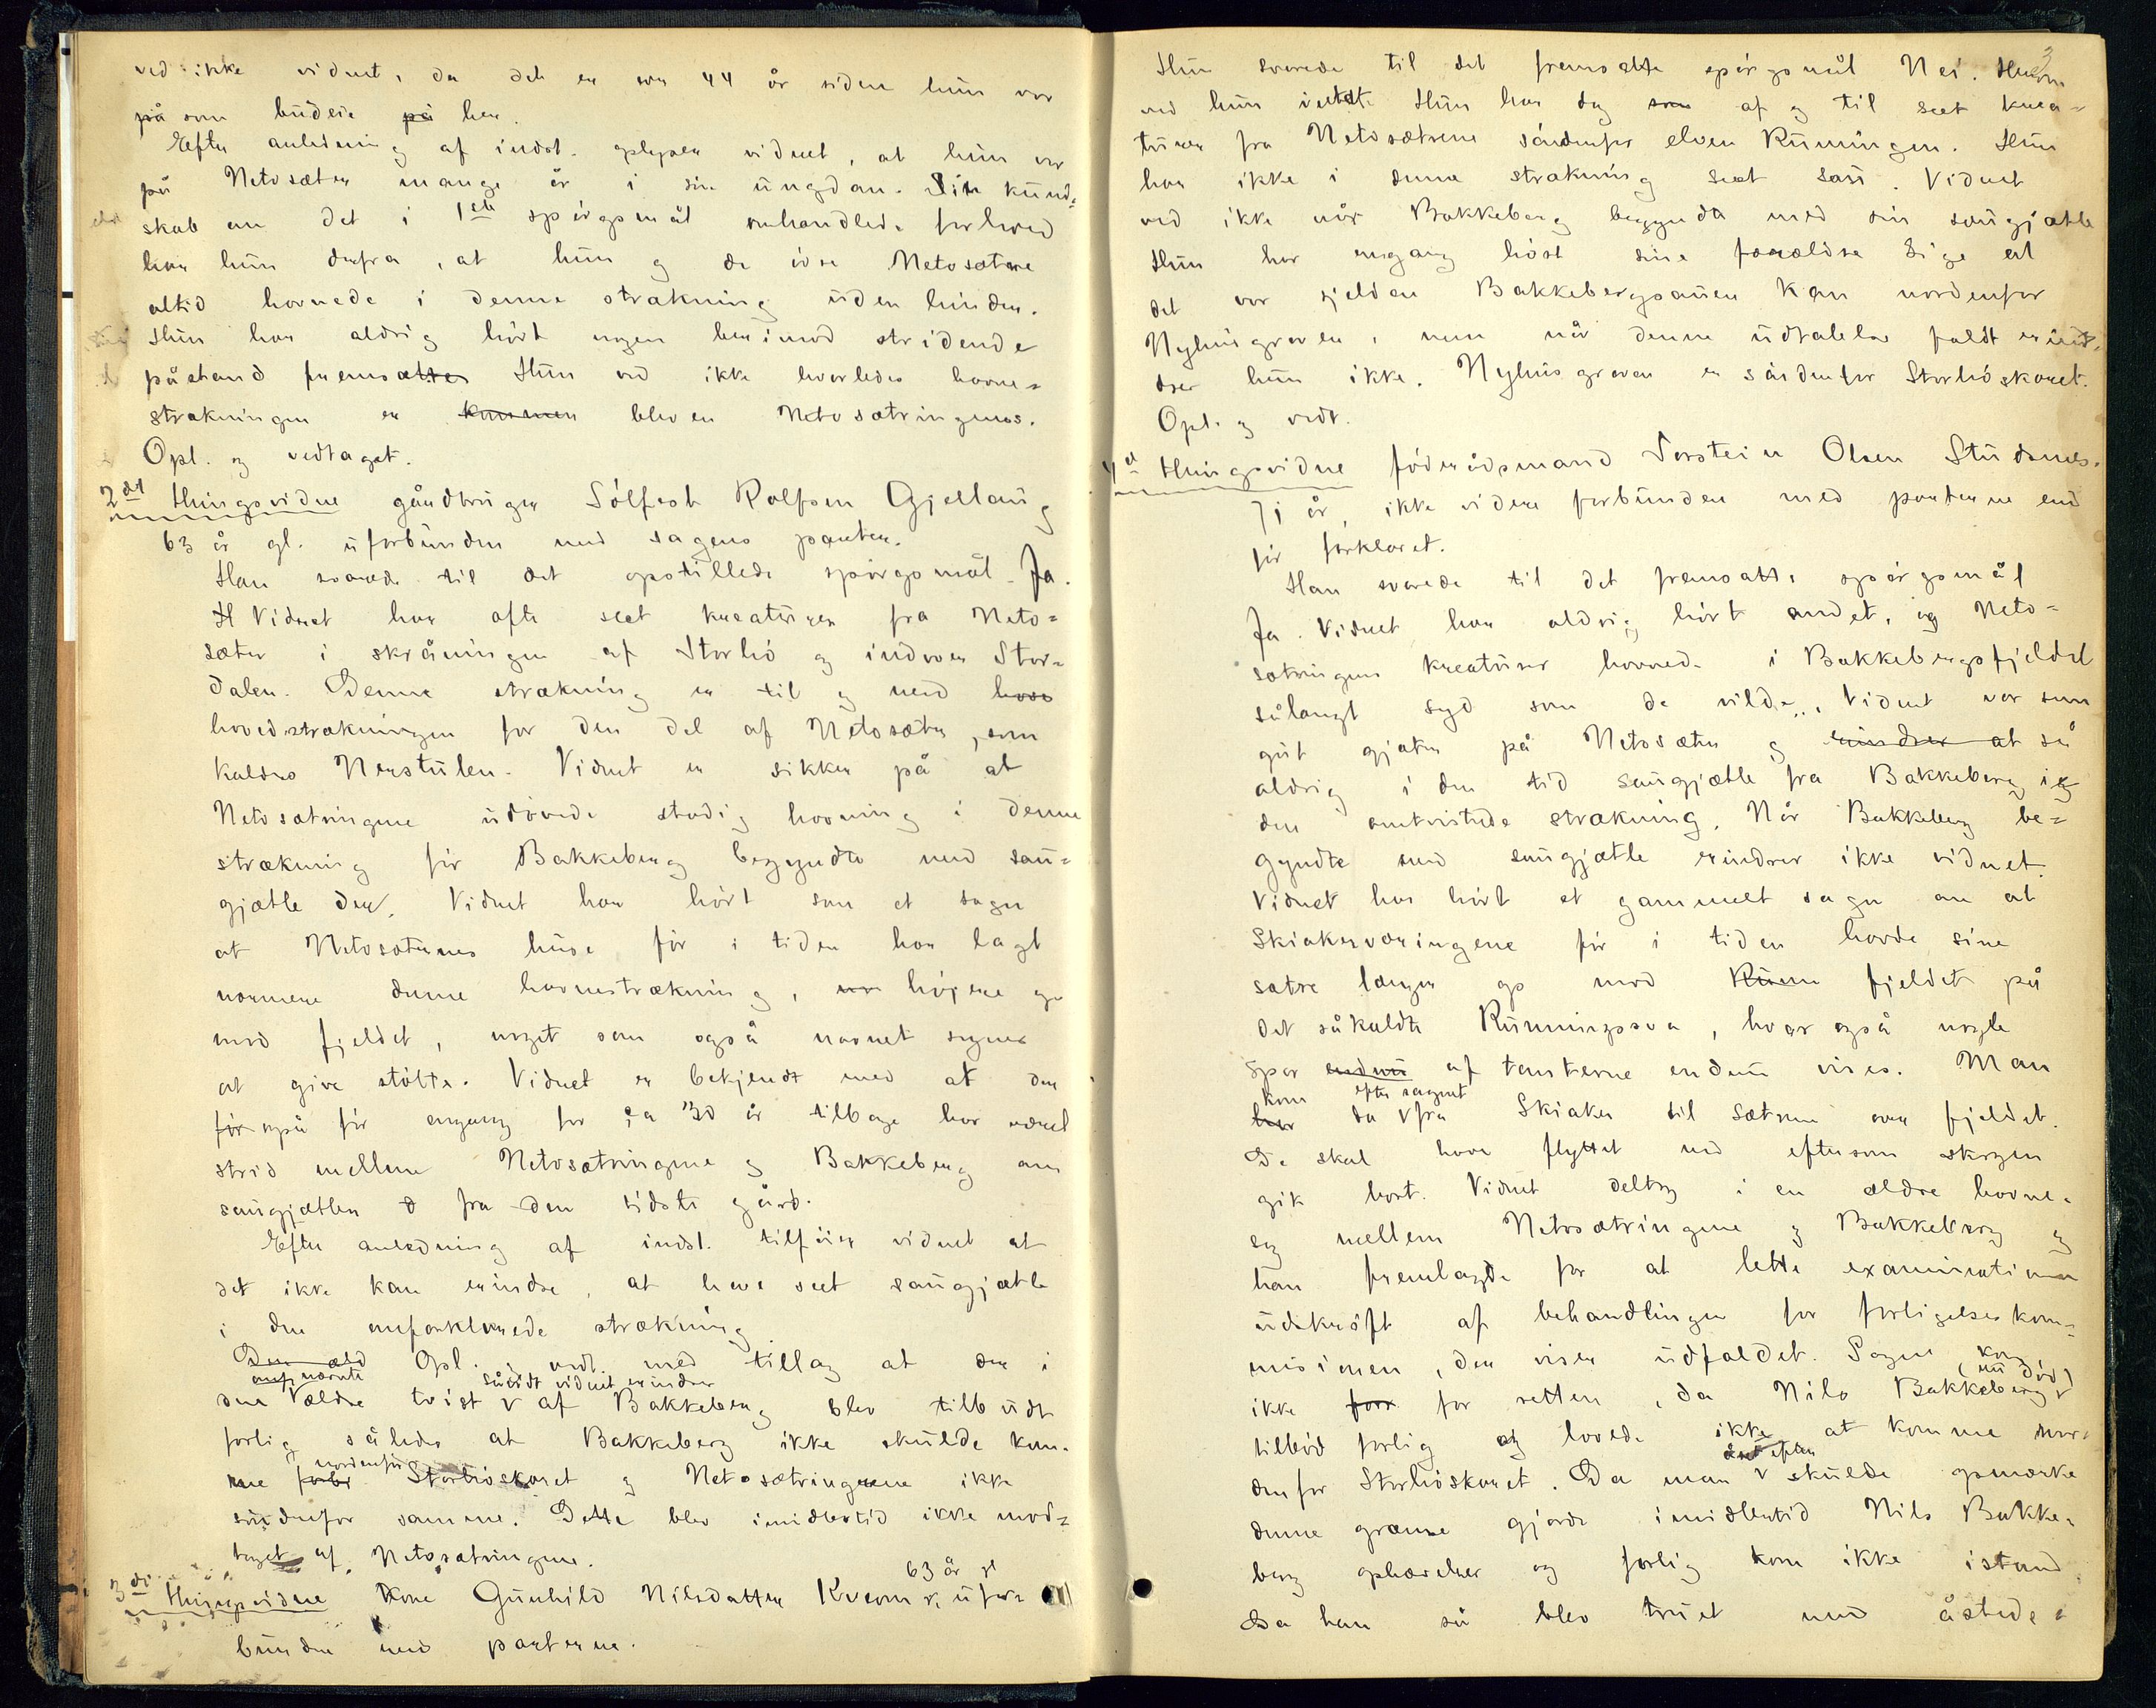 ved ikke vidnet, da det er over 44 år siden hun var
på som budeie på her.
Efter anledning af indst. oplyser vidnet, at hun var
på Netosæter mange år i sin ungdom. Sin kund=
skab om det i 1ste spörgsmål omhandlede forhold
har hun derfra, at hun og de övre Netosætre
altid havnede i denne strækning uden hinder.
Hun har aldrig hört nogen herimod stridende
påstand fremsættes Hun ved ikke hvorledes havne=
strækningen er kommen blev en Netosætringenes.
Opl. og vedtaget.
2det Thingsvidne gårdbruger Sölfest Rolfsen Gjellaug
63 år gl. uforbunden med sagens parter.
Han svarede til det opstillede spörgsmål Ja.
H Vidnet har ofte seet kreaturer fra Neto=
sæter i skråningen af Storhö og indover Stor=
dalen. Denne strækning er til og med hose
hovedstrækningen for den del af Netosæter, som
kaldes Nerstulen. Vidnet er sikker på at
Netosætringene udövede stadig havning i denne
strækning för Bakkeberg begyndte med sau=
gjætle der. Vidnet har hört som et sagn
at Netosætrenes huse för i tiden har lagt
nærmere denne havnestrækning, höjere op
mod fjeldet, noget som også navnet synes
at give stötte. Vidnet er bekjendt med at der
för også för engang for ca 30 år tilbage har været
strid mellem Netosætringene og Bakkeberg om
saugjætlen d fra den sidste gård.
Efter anledning af indst. tilföier vidnet at
det ikke kan erindre, at have seet saugjætle
i den omforklarede strækning
Den æld Opl. vedt. med tillæg at der i
omf nævnte såvidt vidnet erindrer
den ældre tvist v af Bakkeberg blev tilbudt
forlig således at Bakkeberg ikke skulde kom=
nordenfor
me forbi Storhöskaret og Netosætringene ikke
söndenfor samme. Dette blev imidlertid ikke mod=
taget af Netosætringene.
63 år gl
3die Thingsvidne Kone Gunhild Nilsdatter Kvern, ufor=
bunden med parterne.
3
Hun svarede til det fremsatte spörgsmål Nei. Herom
ved hun intet. Hun har dog som af og til seet krea=
turer fra Netosætrene söndenfor elven Rünningen. Hun
har ikke i denne strækning seet sau. Vidnet
ved ikke når Bakkeberg begyndte med sin saugjætle
Hun har engang hört sine forældre sige at
det var sjelden Bakkebergsauen kom nordenfor
Nyhusgroven, men når denne udtalelse faldt erind=
drer hun ikke. Nyhusgroven er söndenfor Storhöskaret.
Opl. og vedt.
4de Thingsvidne föderådsmand Torstein Olsen Studsnes.
71 år, ikke videre forbunden med parterne end
för forklaret.
Han svarede til det fremsatte spörgsmål
Ja. Vidnet har aldrig hört andet, og Neto=
sætringens kreaturer havnede i Bakkebergsfjeldet
sålangt syd som de vilde. Vidnet var som
gut gjæter på Netosæter og erindrer at så
aldrig i den tid saugjætle fra Bakkeberg i
den omtvistede strækning. Når Bakkeberg be=
gyndte med saugjætle erindrer ikke vidnet.
Vidnet har hört et gammelt sagn om at
Skiakerværingene för i tiden havde sine
sætre længer op mod Runn fjeldet på
det såkaldte Runningsva, hvor også nogle
spor endnu af tomterne endnu vises. Man
kom efter sagnet
har da v fra Skiaker til Sætrene over fjeldet.
De skal have flyttet ned eftersom skogen
gik bort. Vidnet deltog i en ældre havne=
sag mellem Netosætringene og Bakkeberg og
han fremlagde for at lette examinationen
udskrift af behandlingen for forligelseskom=
misionen, der viser udfaldet. Sagen kom
(nu död)
ikke forr for retten, da Nils Bakkeberg v
tilböd forlig og lovede ikke at komme nor=
derefter
denfor Storhöskaret. Da man v skulde opmærke
denne grænse gjorde imidlertid Nils Bakke=
berg ophævelser og forlig kom ikke istand
Da han så blev truet med åsteds=